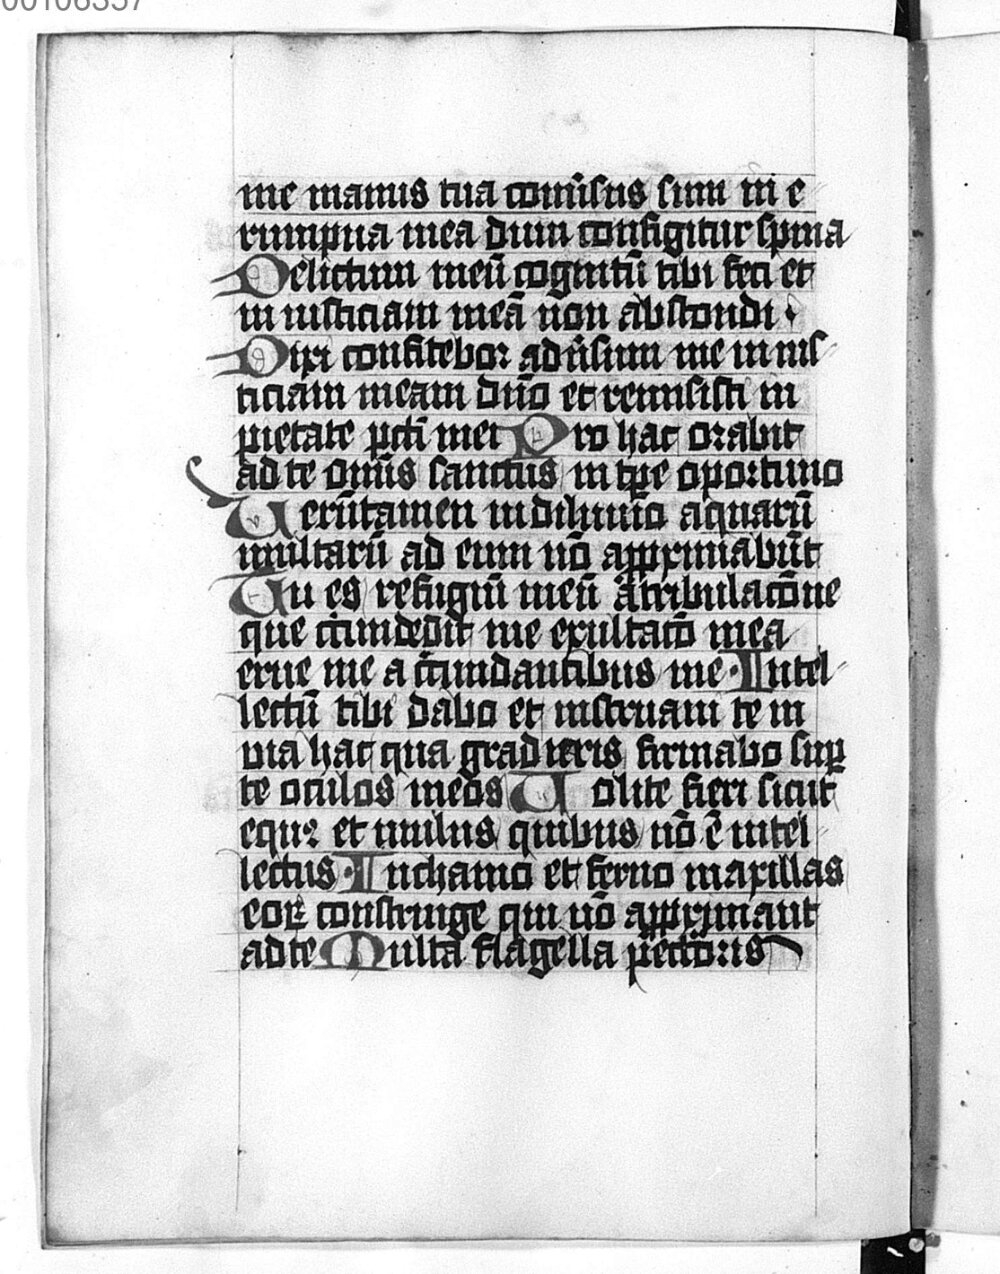 00106357
me manus tua cōnīsus sum in e
rumpna mea dum configitur spina
Delictum meū cognitū tibi feci et
in iusticiam meā non abscondi
Dixi confitebor aduīsum me inius
ticiam meam dnō et remisisti im
pietatē pcti mei Pro hac orabit
ad te omīs sanctus in tpē oportuno
Uerūtamen in diluuio aquarū
multarū ad eum nō apprximabūt
Tu es refugiū meū a tribulacōne
que circūdedit me exultacō mea
erue me a circūdantibus me Intel
lectū tibi dabo et instruam te in
uia hac qua gradieris firmabo sup
te oculos meos Nolite fieri sicut
equs et mulus quibus nō ē intel
lectus In chamo et freno maxillas
eoꝝ constringe qui nō apprximant
ad te Multa flagella pēctōris